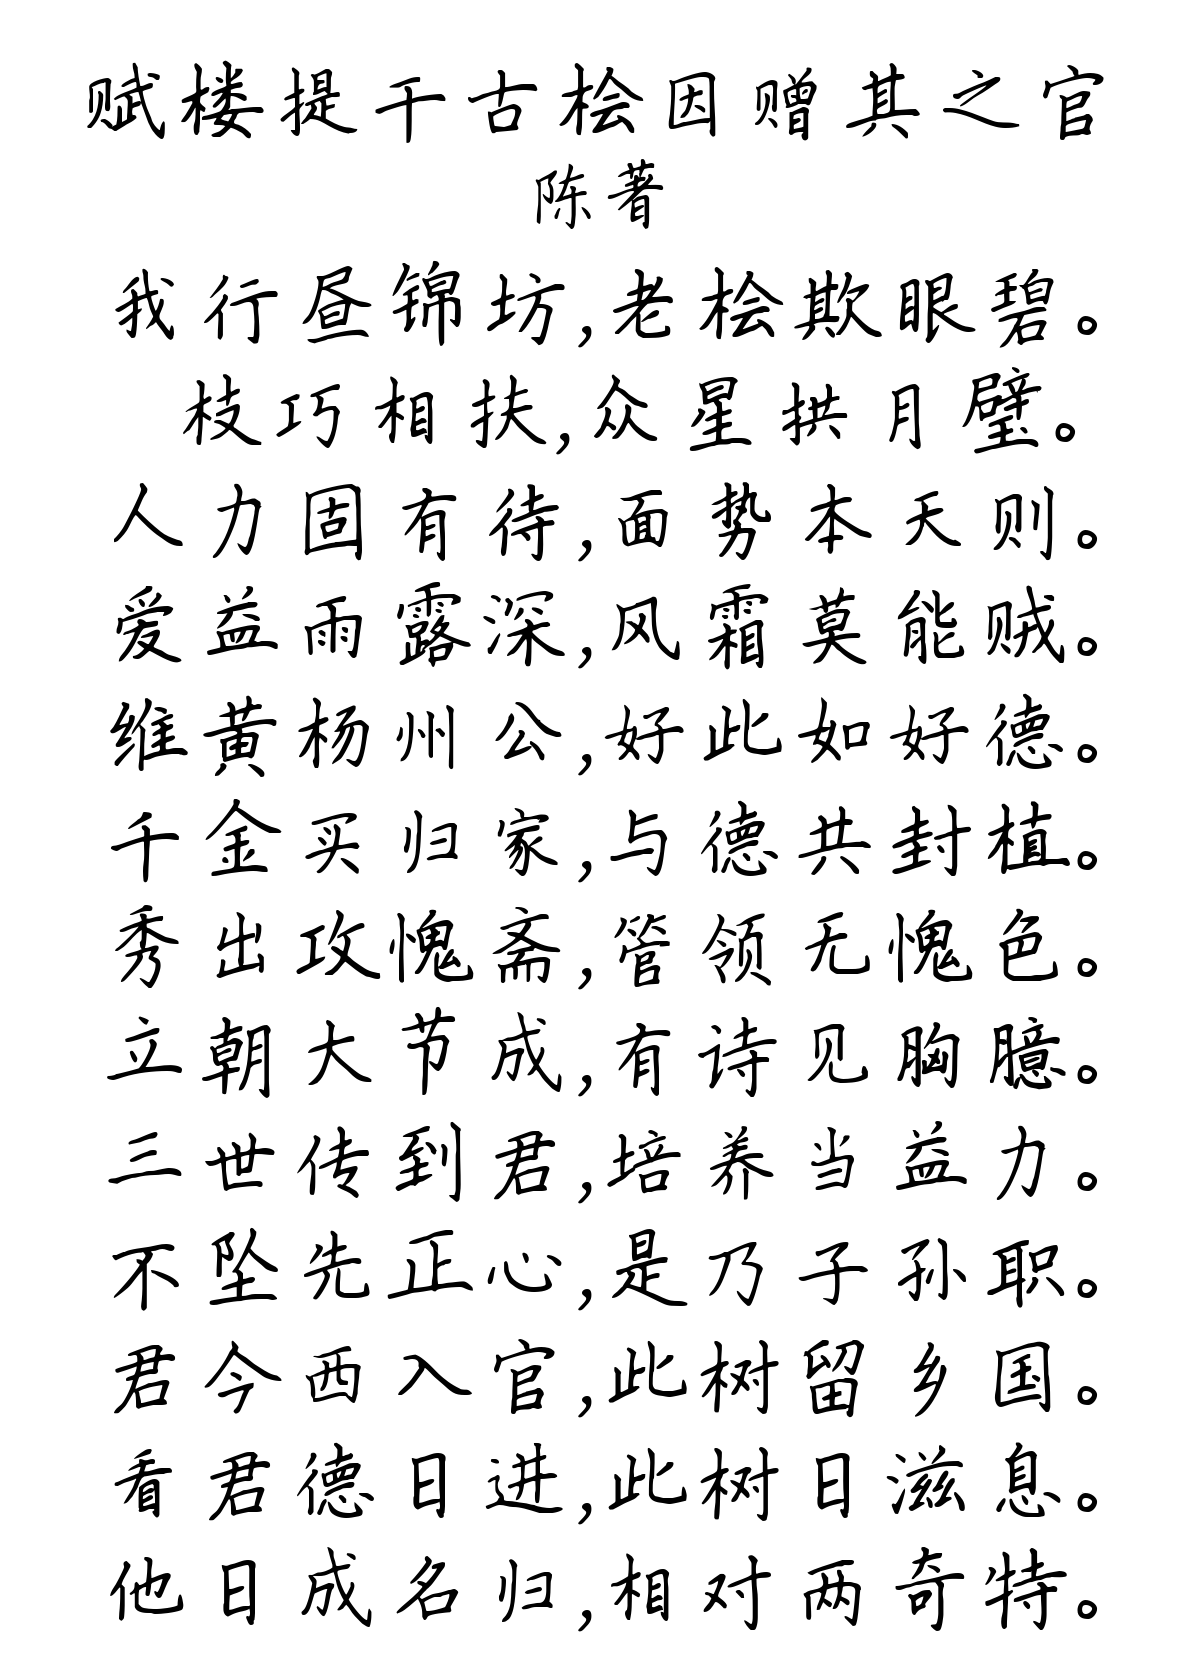 赋楼提干古桧因赠其之官
陈著
我行昼锦坊,老桧欺眼碧。
枝巧相扶,众星拱月璧。
人力固有待,面势本天则。
爱益雨露深,风霜莫能贼。
维黄杨州公,好此如好德。
千金买归家,与德共封植。
秀出攻愧斋,管领无愧色。
立朝大节成,有诗见胸臆。
三世传到君,培养当益力。
不坠先正心,是乃子孙职。
君今西入官,此树留乡国。
看君德日进,此树日滋息。
他日成名归,相对两奇特。